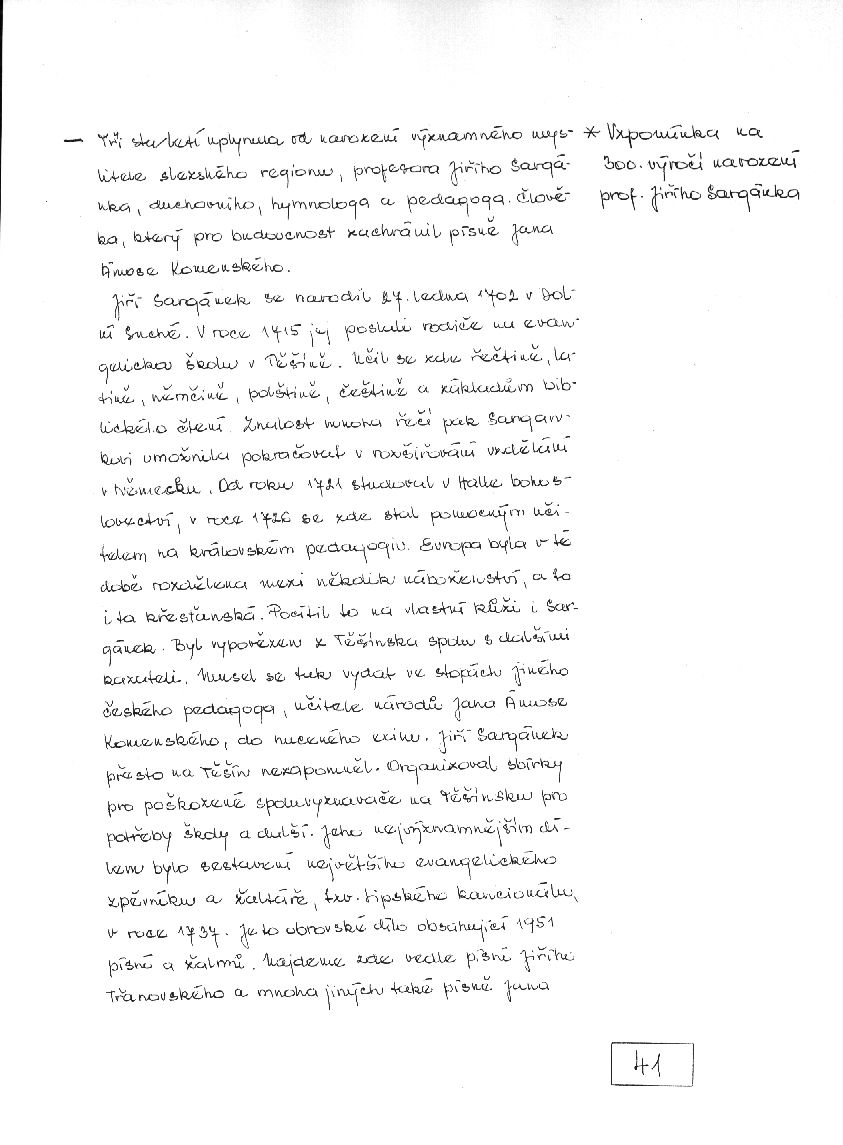 — Tři staletí uplynula od narození významného mys-
litele slezského regionu, profesora Jiřího Sargá-
nka, duchovního, hymnologa a pedagoga. Člově-
ka, který pro budoucnost zachránil písně Jana
Ámose Komenského.
Jiří Sargánek se narodil 27. ledna 1702 v Dol-
ní Suché. V roce 1715 jej poslali rodiče na evan-
gelickou školu v Těšíně. Učil se zde řečtině, la-
tině, němčině, polštině, češtině a základům bib-
lického čtení. Znalost mnoha řečí pak Sargán-
kovi umožnila pokračovat v rozšiřování vzdělání
v Německu. Od roku 1721 studoval v Halle bohos-
lovectví, v roce 1726 se zde stal pomocným uči-
telem na královském pedagogiu. Evropa byla v té
době rozdělena mezi několik náboženství, a to
i ta křesťanská. Pocítil to na vlastní kůži i Sar-
gánek. Byl vypovězen z Těšínska spolu s dalšími
kazateli. Musel se tak vydat ve stopách jiného
českého pedagoga, učitele národů Jana Ámose
Komenského, do nuceného exilu. Jiří Sargánek
přesto na Těšín nezapomněl. Organizoval sbírky
pro poškozené spoluvyznavače na Těšínsku pro
potřeby školy a další. Jeho nejvýznamnějším dí-
lem bylo sestavení největšího evangelického
zpěvníku a žaltáře, tzv. Lipského kancionálu,
v roce 1737. Je to obrovské dílo obsahující 1951
písní a žalmů. Najdeme zde vedle písní Jiřího
Třanovského a mnoha jiných také písně Jana
* Vzpomínka na
300. výročí narození
prof. Jiřího Sargánka
41